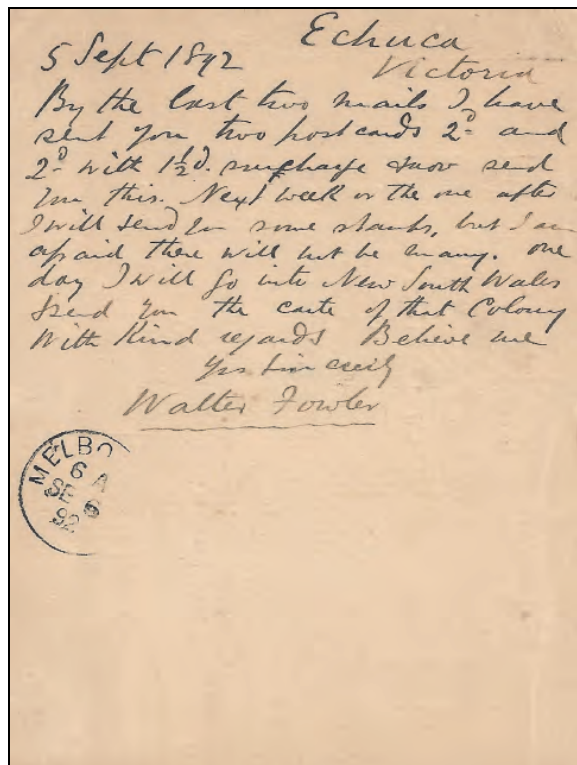 Echuca
5 Sept 1892
Victoria
By the last two mails I have
sent you two postcards 2d and
2d with 1½d. surcharge & now send
you this. Next week or the one after
I will send you some stamps, but I am
afraid there will not be many. one
day I will go into New South Wales
& send you the carte of that Colony
With Kind regards Believe me
Yrs Sincerely
Walter Fowler
MELBO
6 A
SE 6
92